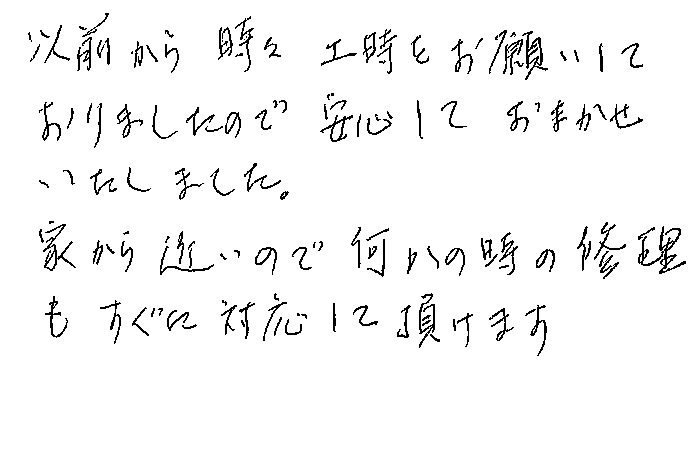 以前から 時々 工時をお願いして
おりましたので 安心して おまかせ
いたしました。
家から 近いので 何かの時の修理
も すぐに 対応して 頂けます